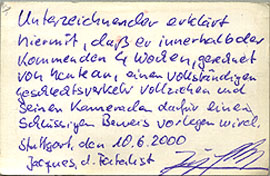 Unterzeichnender erklärt
hiermit, daß er innerhalb der
kommenden 4 Wochen, gerechnet
von heute an, einen vollständigen
geschlechtsverkehr vollziehen und
seinen Kameraden dafür einen
schlüssigen Beweis vorlegen wird.
Stuttgart, den 10.6.2000
Jacques, d.